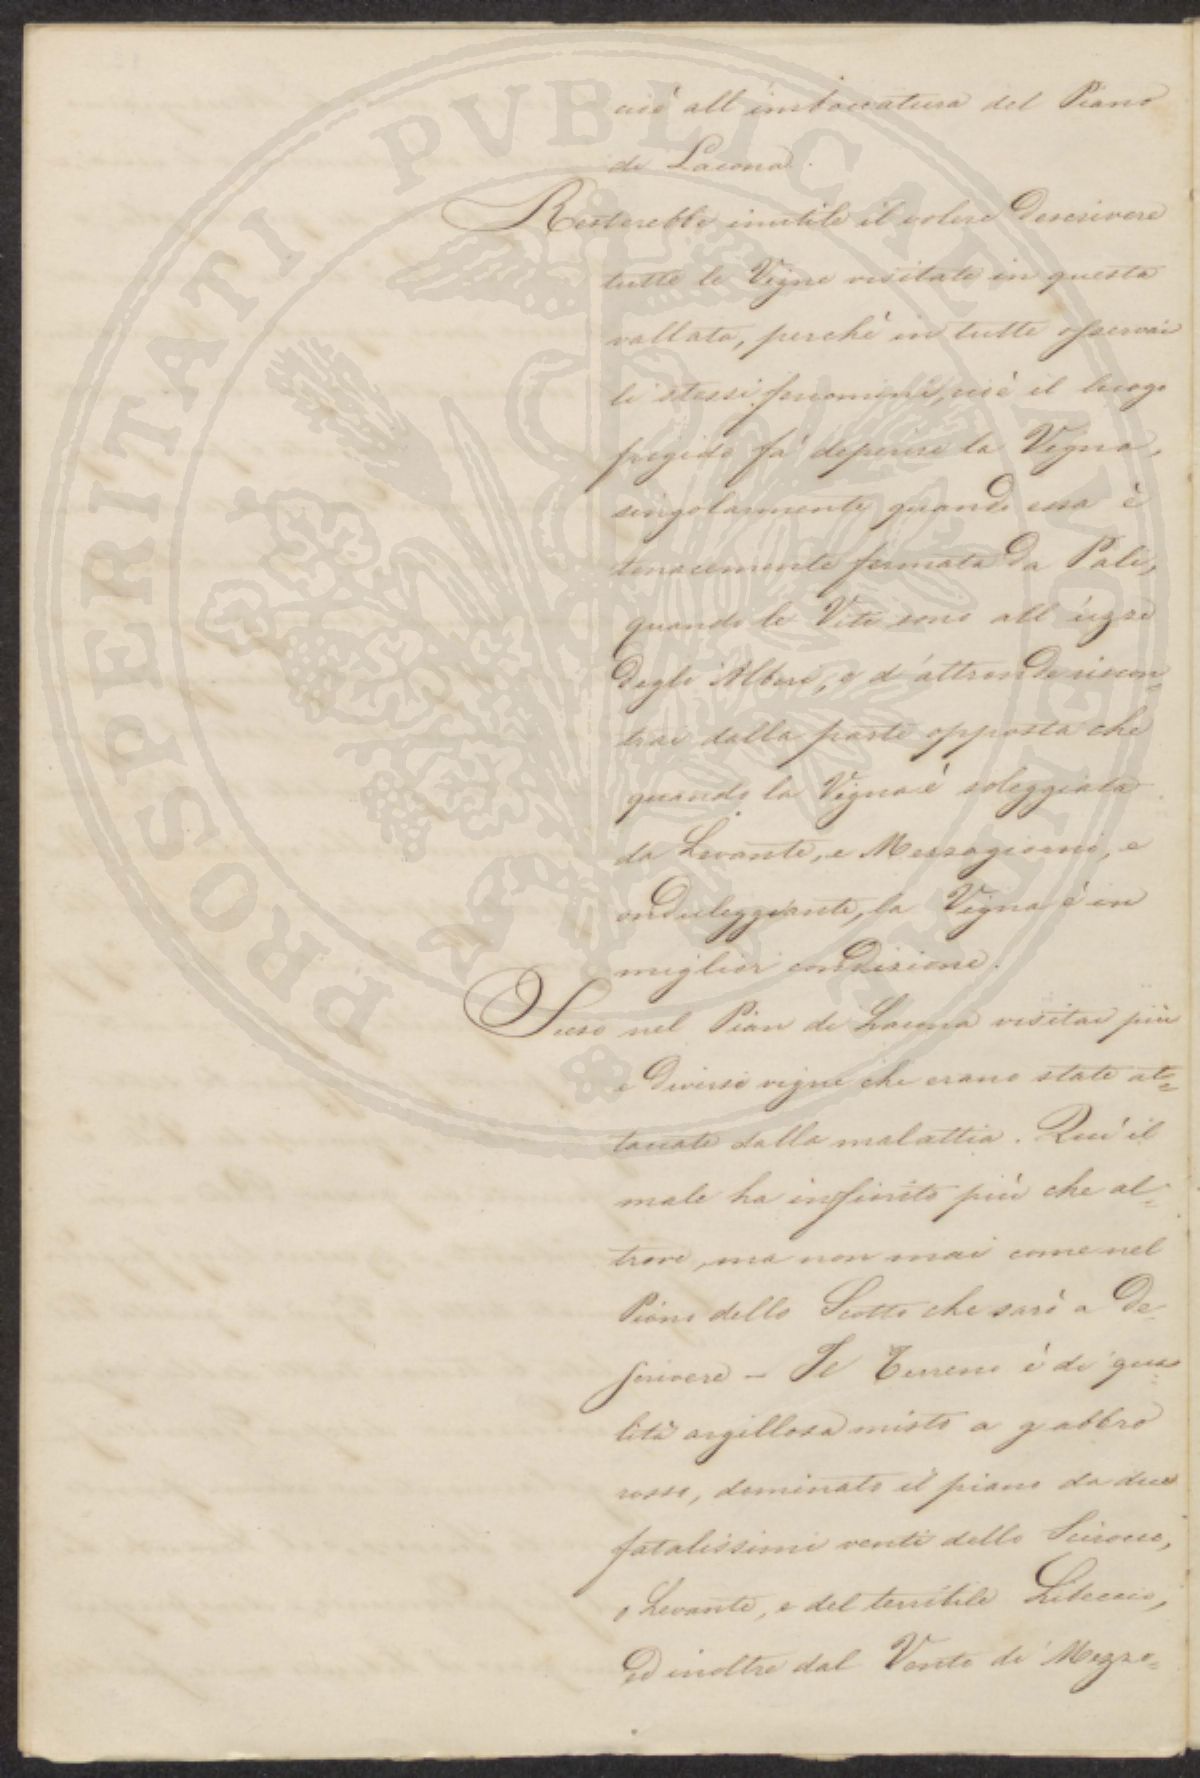 cioè all'imboccatura del Piano
di Lacona.
Resterebbe inutile il volere descrivere
tutte le Vigne visitate in questa
vallata, perchè in tutte osservai
li stessi fenomeni, cioè il luogo
frigido fà deperire la Vigna,
singolarmente quando essa è
tenacemente fermata da Pali,
quando le Viti sono all'uzzo
degli Alberi, e d'altronde riscon=
trai dalla parte opposta che
quando la Vigna è soleggiata
da Levante, e Mezzogiorno, e
onduleggiante, la Vigna è in
miglior condizione.
Sceso nel Pian di Lacona visitai più
e diverse vigne che erano state at=
taccate dalla malattia. Quì il
male ha infierito più che al=
trove, ma non mai come nel
Piano dello Stotto che sarò a de=
scrivere - Il Terreno è di qua=
lità argillosa misto a gabbro
rosso, dominato il piano da due
fatalissimi venti dello Scirocco,
o Levante, e del terribile Libeccio,
ed inoltre dal Vento di Mezzo=
PROSPERITATI PVBLICAE AVGENDAE